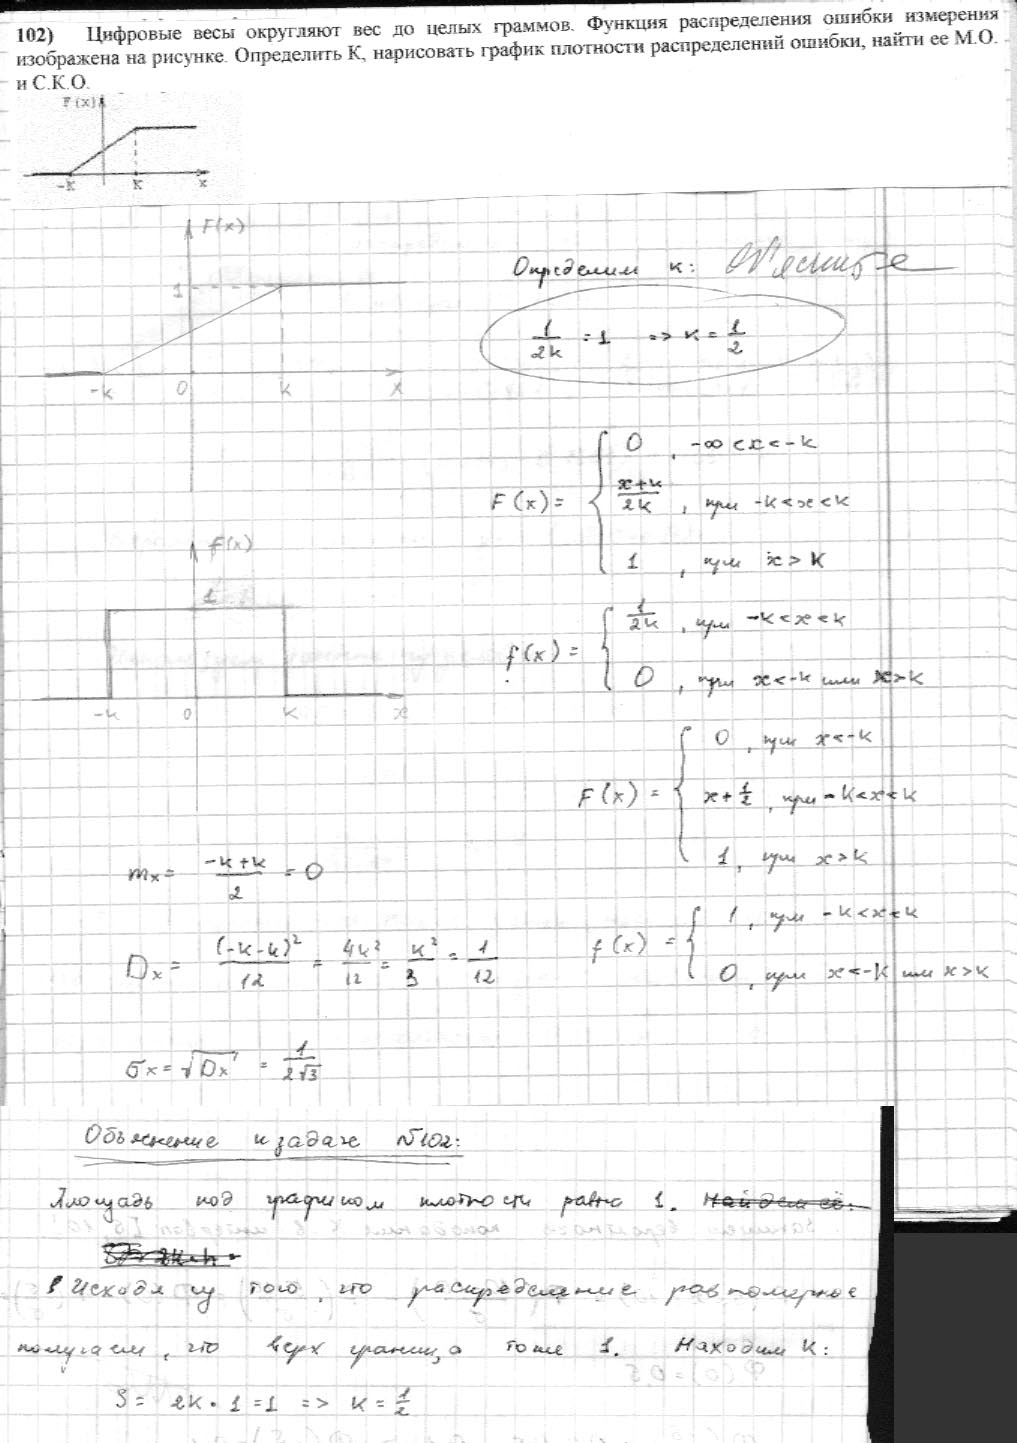 102) Цифровые весы округляют вес до целых граммов. Функция распределения ошибки измерения
изображена на рисунке. Определить К, нарисовать график плотности распределений ошибки, найти ее М.О.
и С.К.О.
F(x)
-K K x
F(x)
1
-k 0 k x
Определим к: Объясните
1/2k = 1 => k = 1/2
F(x) = { 0, -∞ < x < -k
x+k/2k, при -k < x < k
1, при x > k
f(x)
1
-k 0 k x
f(x) = { 1/2k, при -k < x < k
0, при x < -k или x > k
F(x) = { 0, при x < -k
x + 1/2, при -k < x < k
1, при x > k
mx = -k+k/2 = 0
Dx = (-k-k)²/12 = 4k²/12 = k²/3 = 1/12
f(x) = { 1, при -k < x < k
0, при x < -k или x > k
σx = √Dx = 1/2√3
Объяснение к задаче №102:
Площадь под графиком плотности равна 1. Найдем её:
Исходя из того, что распределение равномерное
получаем, что верх граница тоже 1. Находим К:
S = 2k · 1 = 1 => k = 1/2